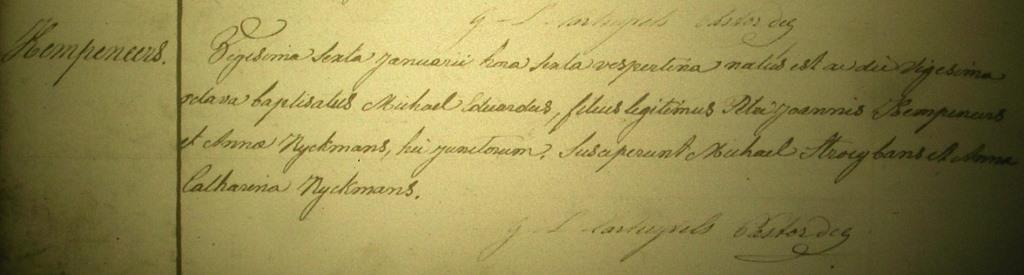 Pastor deg
Kempeneers.
Vigesima sexta januarii hora sexta vespertina natus est ac die vigesima
octava baptisatus Michael Eduardus, filius legitimus Petri Joannis Kempeneers
et Anna Ryckmans, hic junctorum. Susceperunt Michael et Anna
Catharina Ryckmans.
Pastor deg